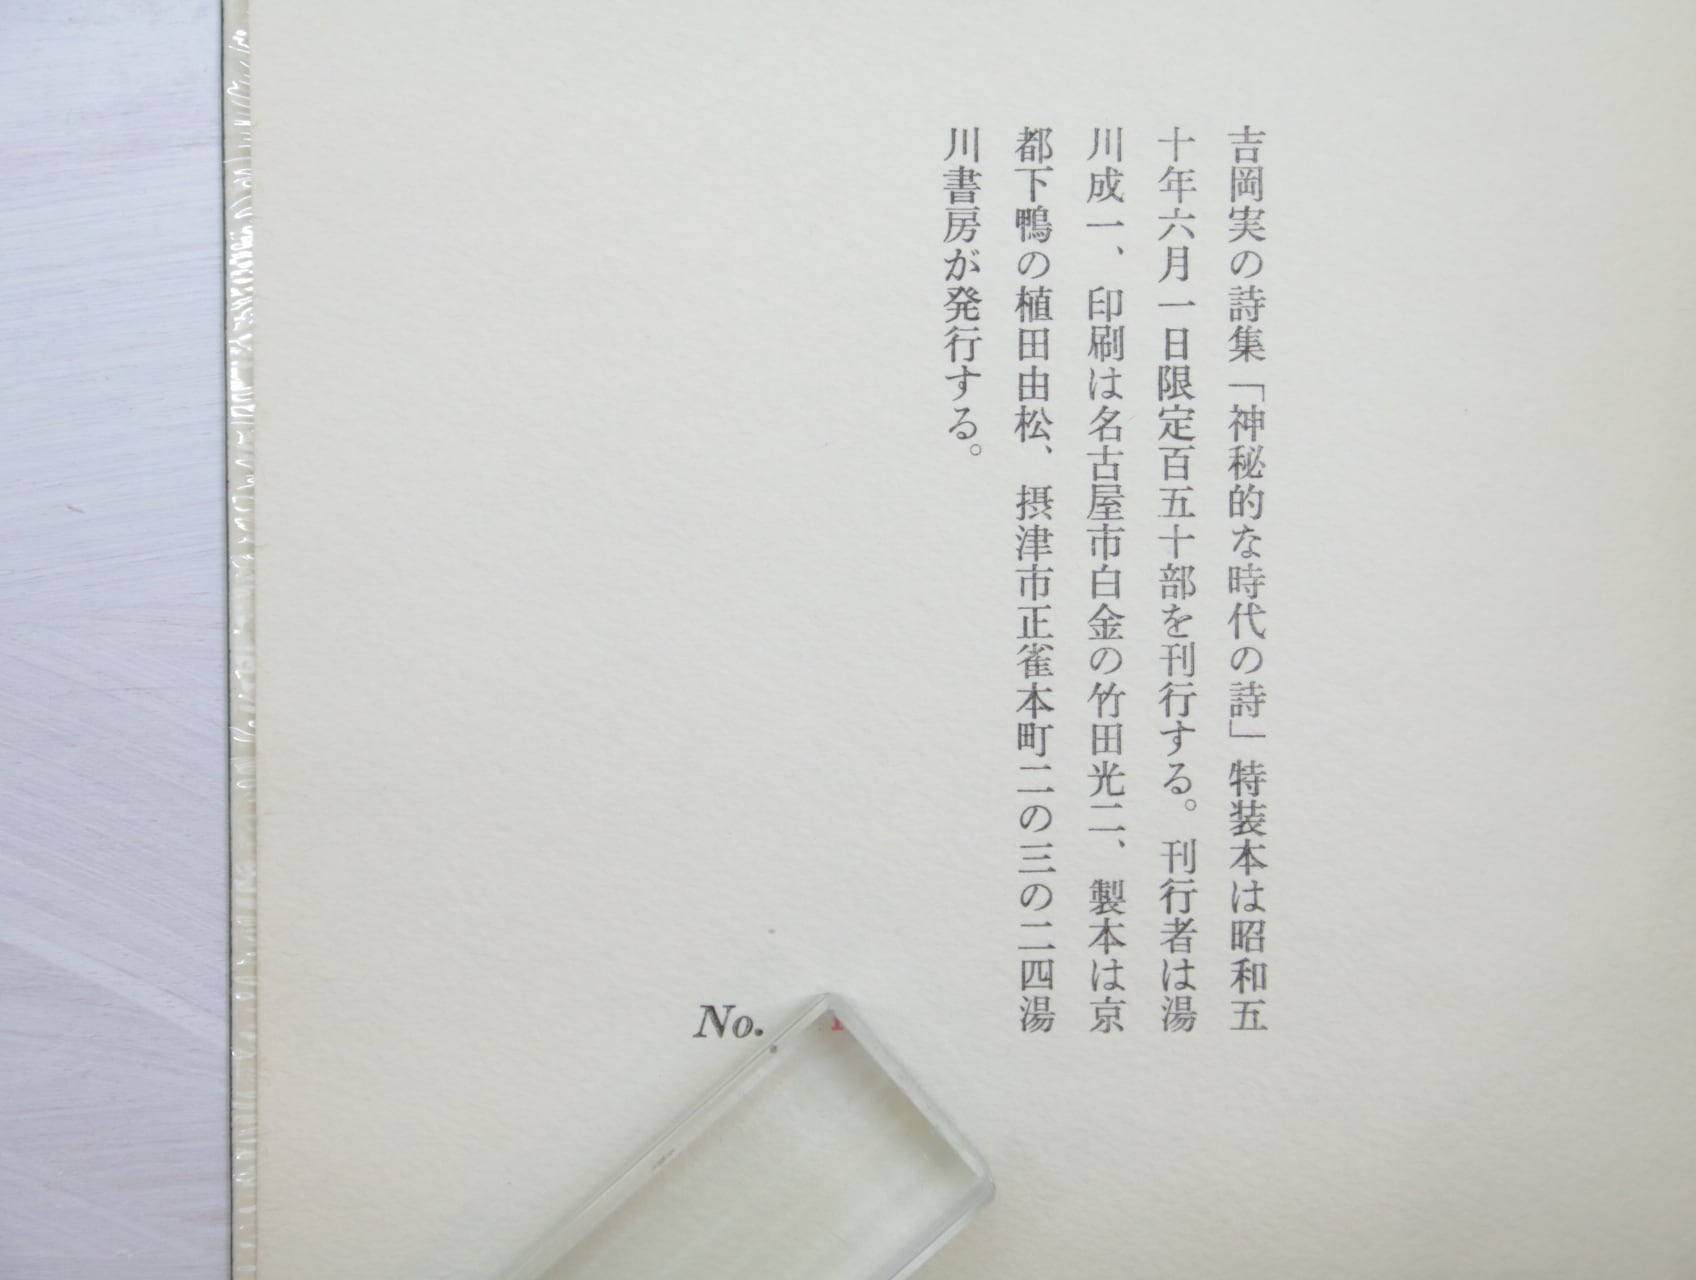 吉岡実の詩集「神秘的な時代の詩」特装本は昭和五
十年六月一日限定百五十部を刊行する。刊行者は湯
川成一、印刷は名古屋市白金の竹田光二、製本は京
都下鴨の植田由松、摂津市正雀本町二の三の二四湯
川書房が発行する。
No.